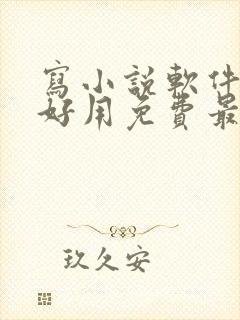 寫小說軟件
好用免費最
玖久安